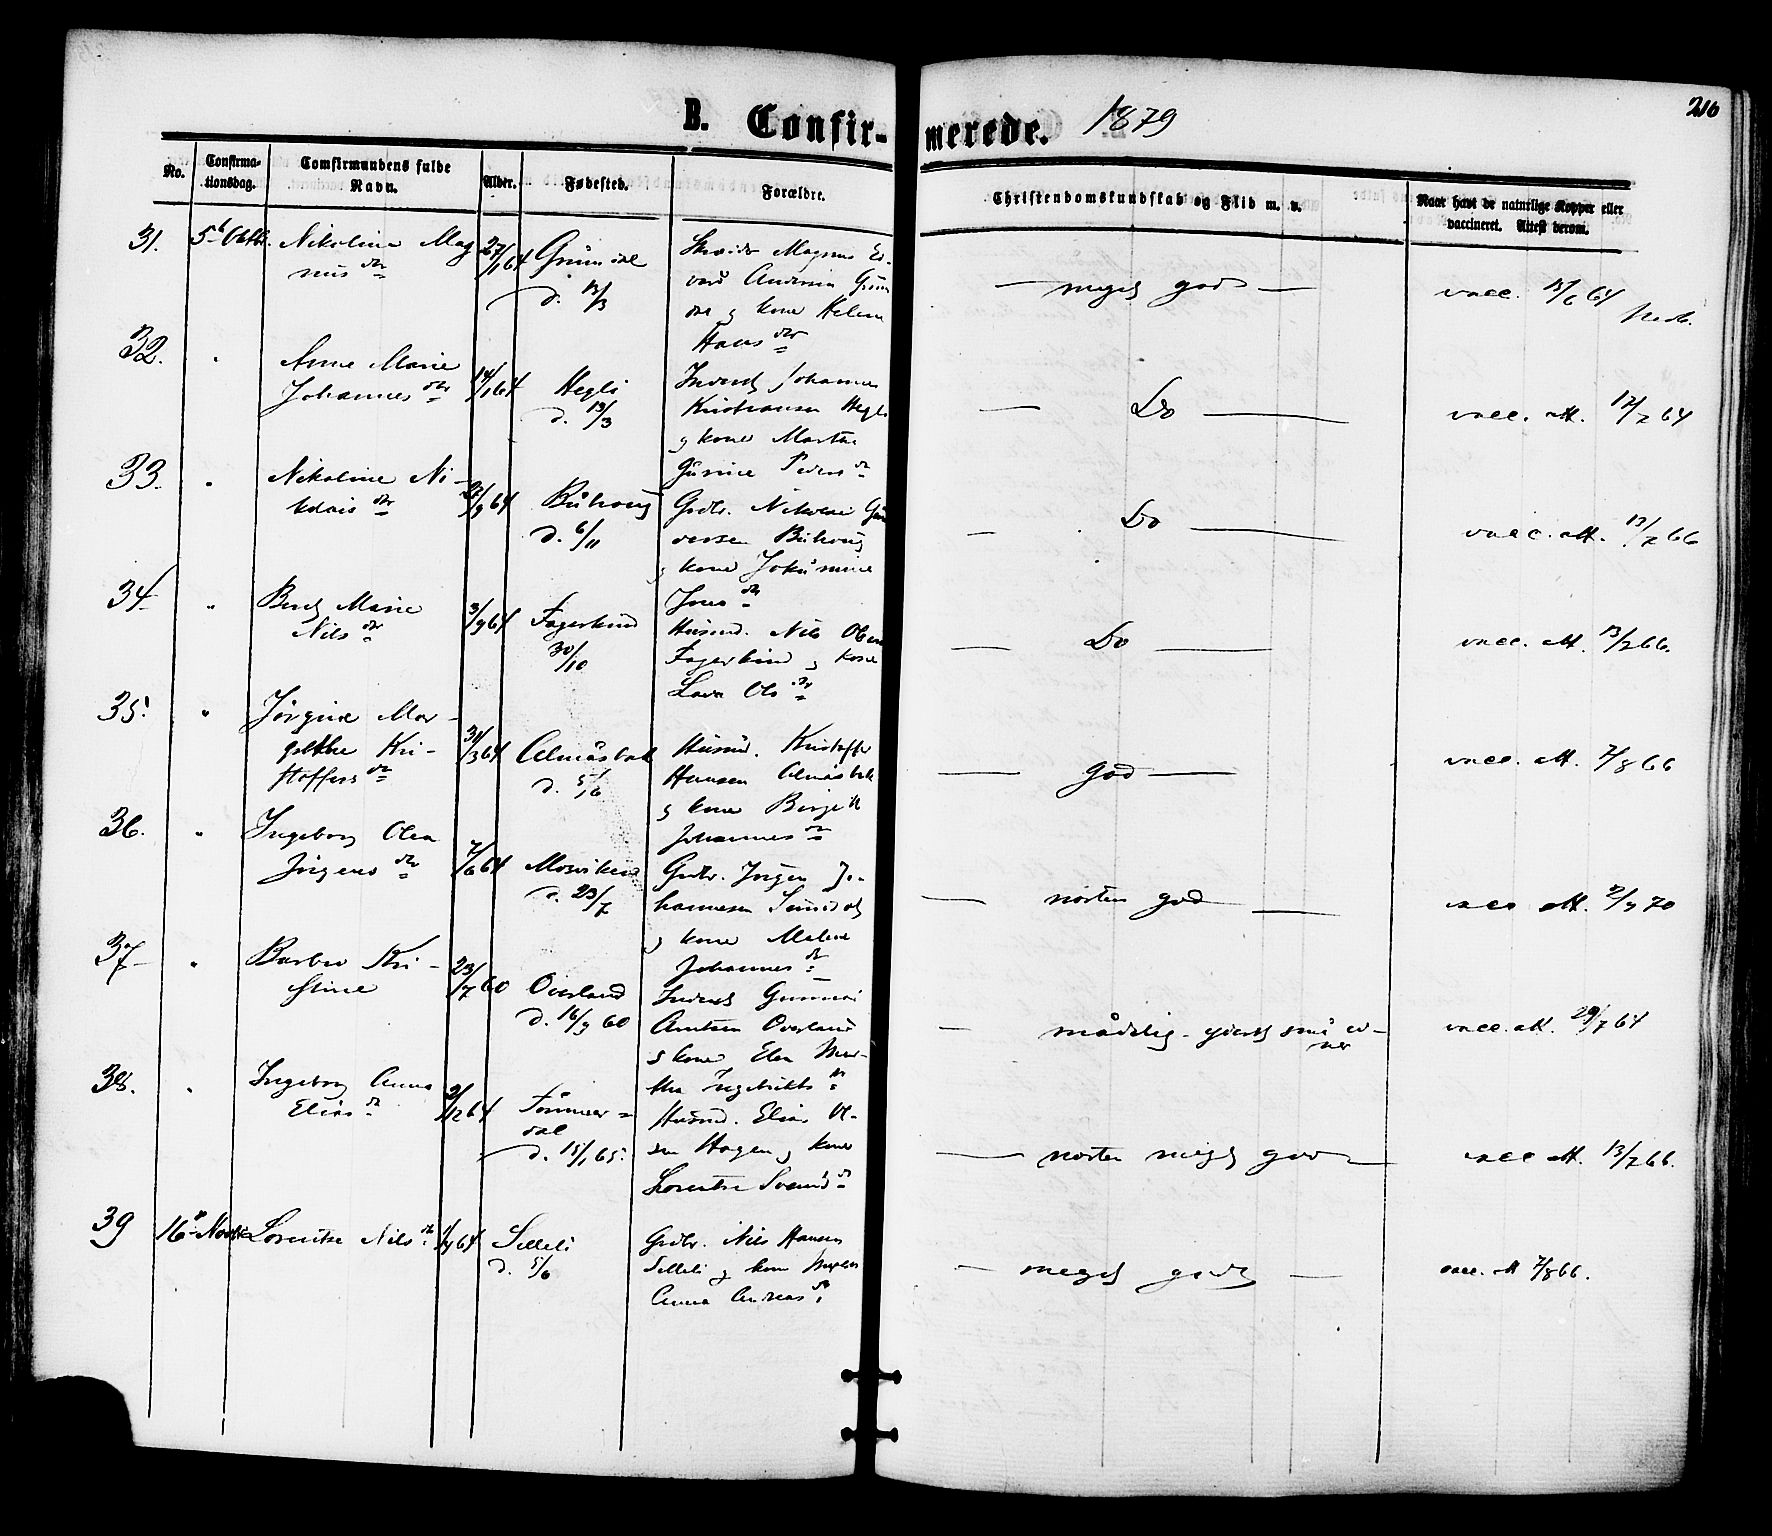 B. Confir-
merede. 1879
216
No.
Confirma-
tionsdag.
Comfirmandens fulde
Navn.
Alder.
Fødested.
Forældre.
Christendomskundskab og Flid m. v.
Naar havt de naturlige Kopper eller
vaccineret. Attest derom.
31. 5te Oktbr. Nikoline Mag
nus dtr
27/1 64
d. 13/3
Magnus
Andersen
og kone Helene
Hans dtr
— meget god —
vacc. 13/6 64
32. "
Anne Marie
Johannes dtr
14/1 64
Hegli
d. 13/3
Johannes
Kristiansen Hegli
og kone Marthe
Gurine Peders dtr
— Do —
vacc. att. 12/7 64
33. "
Nikoline Ni-
kolais dtr
27/9 64
Buhoug
d. 6/11
Grdbr. Nikolai
Buhoug
og kone Jokumine
Jens dtr
— Do —
vacc. att. 13/7 66
34 "
Berit Marie
Nils dtr
3/9 64
Fagerlund
30/10
Husmd. Nils Olsen
Fagerlund og kone
Ols dtr
— Do —
vacc. att. 13/7 66.
35. "
Jørgine Mar-
grethe Kri-
stoffers dtr
31/3 64
Almåsbak
d. 5/6
Husmd. Kristoffer
Hansen Almåsbak
og kone Birgitt
Johannes dtr
— god —
vacc. att. 7/8 66
36. "
Ingeborg Olea
Jörgens dtr
7/6 64
Mosviken
d. 23/7
Grdbr. Jörgen Jo-
hannesen
og kone Malene
Johannes dtr
— næsten god —
vacc att. 2/9 70
37 "
Barbro Kri-
stine
23/7 60
Overland
d. 16/9 60
Gunnar
Arntsen Overland
og kone Elen Mar-
tha Ingebrikts dtr
— mådelig - små ev-
ner
vacc. att. 29/7 64
38. "
Ingeborg Anna
Elias dtr
2/12 64
dal
d. 15/1 65.
Husmd. Elias Ol-
sen Hagen og kone
Lorentse Svends dtr
— næsten meget god —
vacc att. 13/7 66.
39 16de Novbr Lorentse Nils dtr
64
Selleli
d. 5/6
Grdbr. Nils Hansen
Selleli og kone
Anna Andreas dtr
— meget godt —
vacc. att 7/8 66.